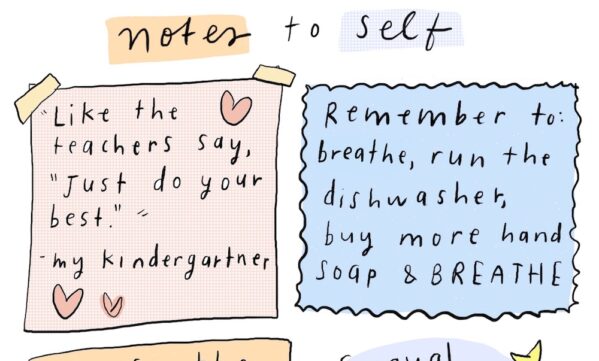 notes to self
"Like the
teachers say,
"Just do your
best.""
-my kindergartner
Remember to:
breathe, run the
dishwasher,
buy more hand
soap & BREATHE